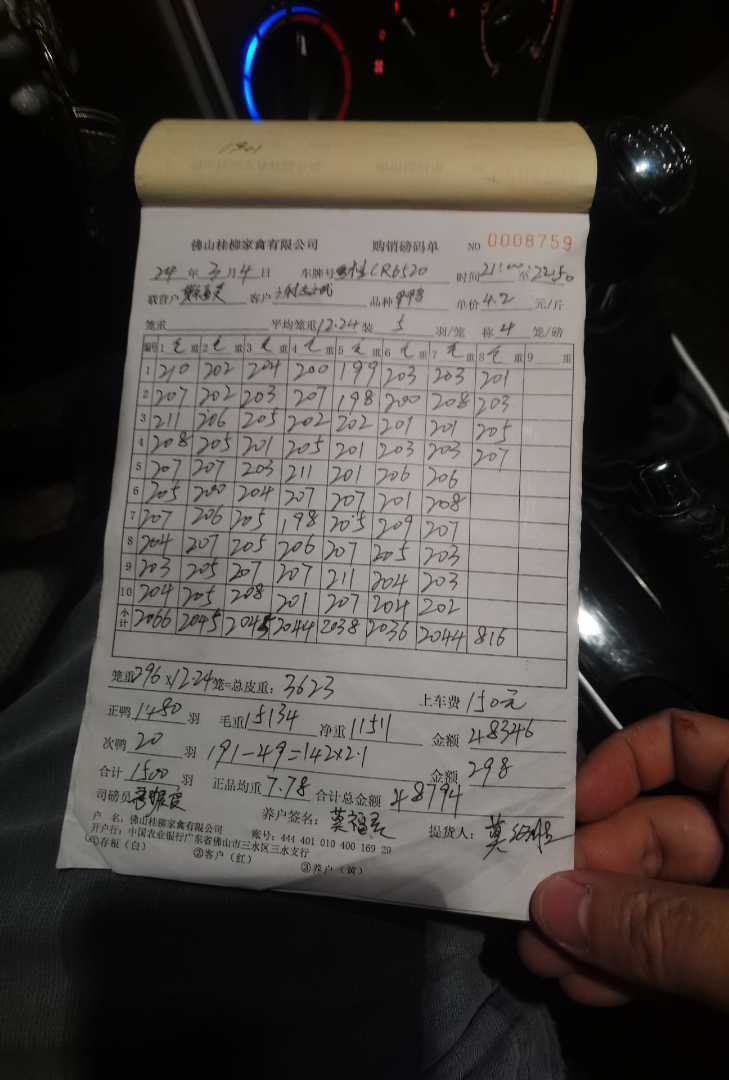 1701
佛山桂柳家禽有限公司 购销磅码单 NO 0008759
24 年 3 月 4 日 车牌号 桂CR6520 时间 21:00 至 22:50
联营户 客户 品种 单价 4.2 元/斤
笼重 平均笼重 12.24 装 5 羽/笼 称 4 笼/磅
编号 1 毛 重 2 毛 重 3 毛 重 4 毛 重 5 毛 重 6 毛 重 7 毛 重 8 毛 重 9 重
1 210 202 204 200 199 203 203 201
2 207 202 203 207 198 200 208 203
3 211 206 205 202 202 201 201 205
4 208 205 201 205 201 203 203 207
5 207 207 203 211 201 206 206
6 205 200 204 207 207 201 208
7 207 206 205 198 205 209 207
8 204 207 205 206 207 205 203
9 203 205 207 207 211 204 203
10 204 205 208 201 207 204 202
小计 2066 2045 2045 2044 2038 2036 2044 816
笼重 296×12.24 笼=总皮重: 3623 上车费 150元
正鸭 1480 羽 毛重 15134 净重 11511 金额 48346
次鸭 20 羽 191-49=142×2.1 金额 298
合计 1500 羽 正品均重 7.78 合计总金额 48794
司磅员 养户签名: 莫福 提货人: 莫
户 名: 佛山桂柳家禽有限公司 账号: 444 401 010 400 169 29
开户行: 中国农业银行广东省佛山市三水区三水支行
①存根(白) ②客户(红) ③养户(黄)